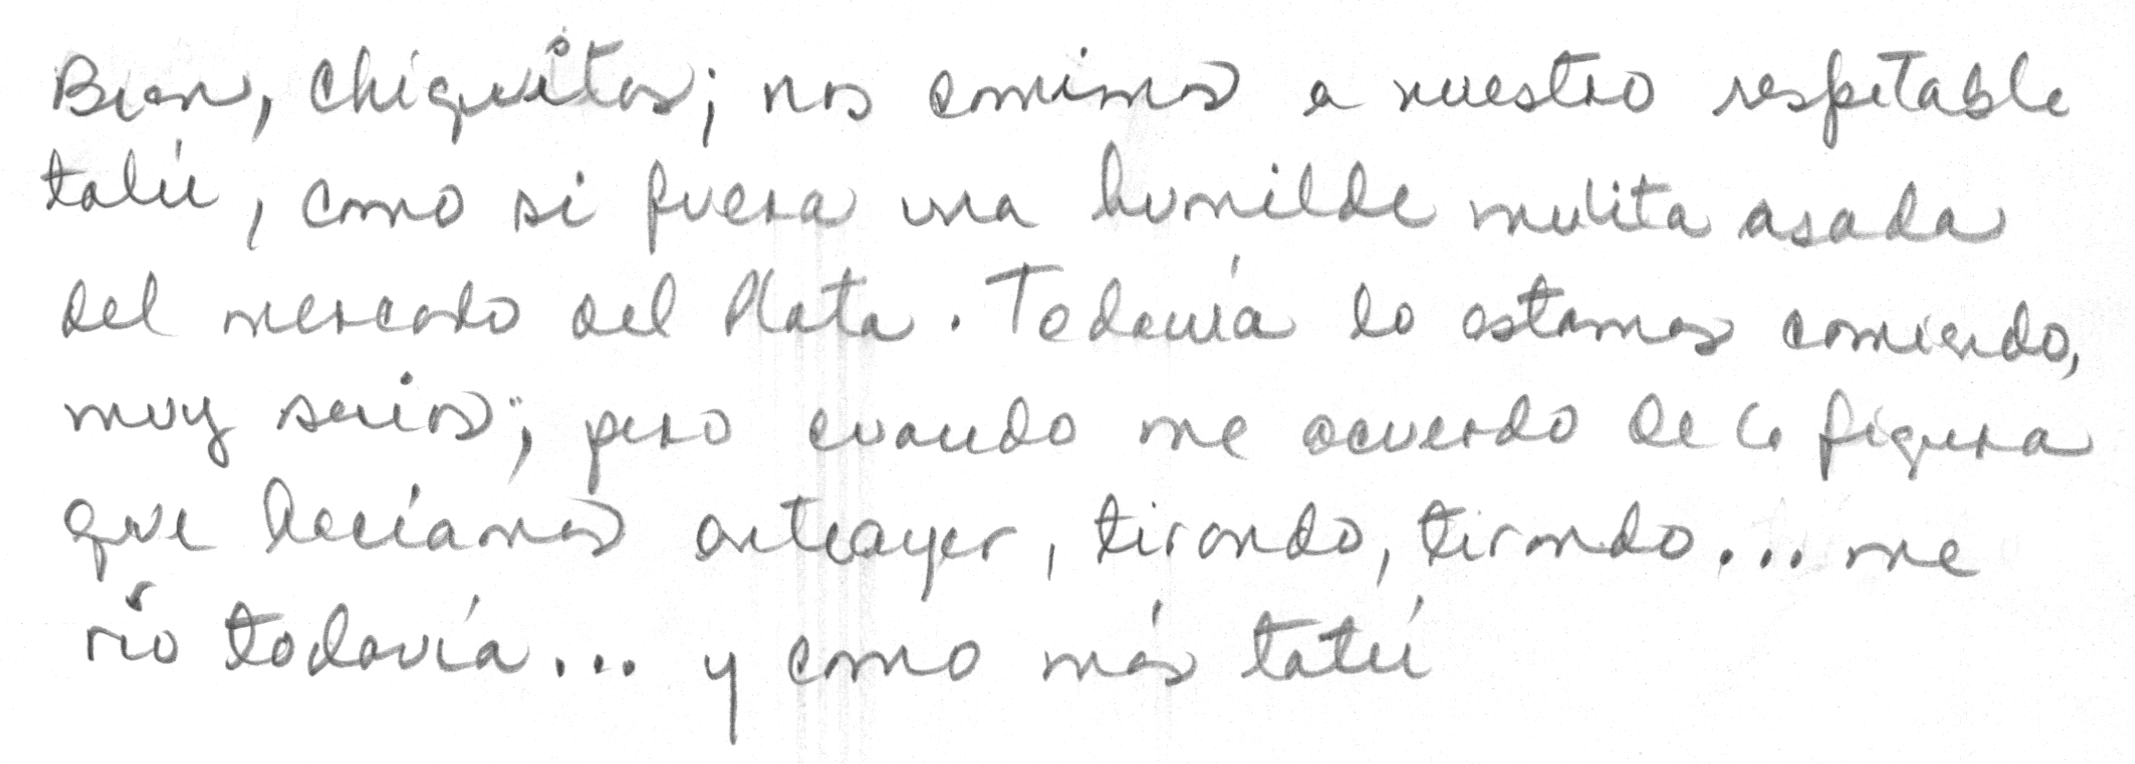 Bien, chiquitos; nos comimos a nuestro respetable
tatú, como si fuera una humilde mulita asada
del mercado del Plata. Todavía lo estamos comiendo,
muy serios; pero cuando me acuerdo de la figura
que hacíamos anteayer, tirando, tirando... me
río todavía... y como más tatú